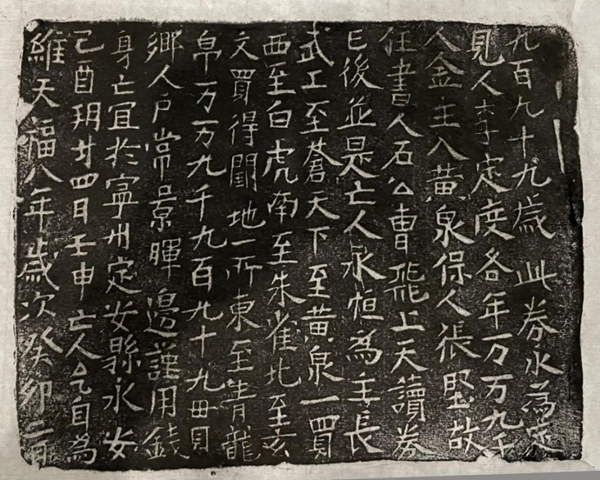 維天福八年歲次癸卯二月
己酉朔廿四日壬申亡人自為
身亡宜於寧州定安縣永安
鄉人戶常景暉邊謹用錢
帛万万九千九百九十九貫
文買得地一所東至青龍
西至白虎南至朱雀北至玄
武上至蒼天下至黃泉一買
已後並是亡人永恒為主長
任書人石公曹飛上天讀券
人金主入黃泉保人張堅故
見人李定度各年万万九千
九百九十九歲 此券永為